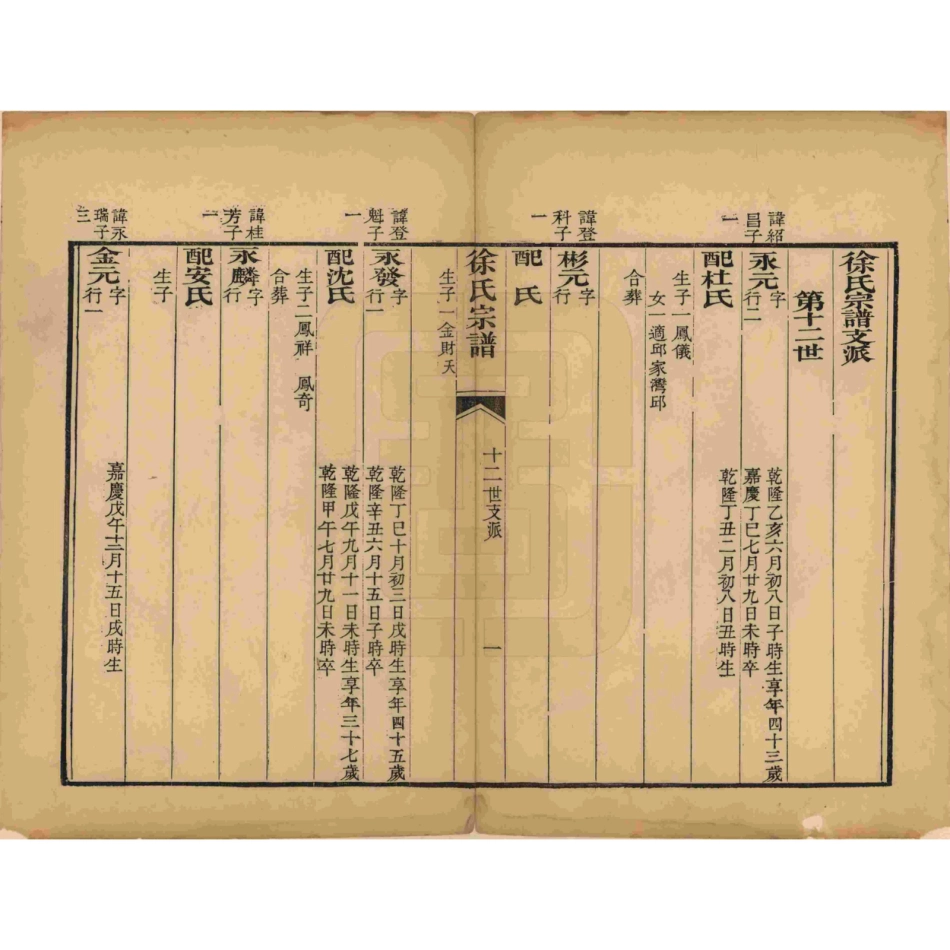 徐氏宗譜支派
第十二世
諱紹
昌子
一
永元字
行二
乾隆乙亥六月初八日子時生享年四十三歲
嘉慶丁巳七月廿九日未時卒
配杜氏
乾隆丁丑二月初八日丑時生
生子一鳳儀
女一適邱家灣邱
合葬
諱登
科子
一
彬元字
行
配 氏
徐氏宗譜
十二世支派
一
生子一金財夭
諱登
魁子
一
永發字
行一
乾隆丁巳十月初三日戌時生享年四十五歲
乾隆辛丑六月十五日子時卒
配沈氏
乾隆戊午九月十一日未時生享年三十七歲
乾隆甲午七月廿九日未時卒
生子二鳳祥 鳳奇
合葬
諱桂
芳子
一
永麟字
行
配安氏
生子
諱永
瑞子
三
金元字
行一
嘉慶戊午十二月十五日戌時生